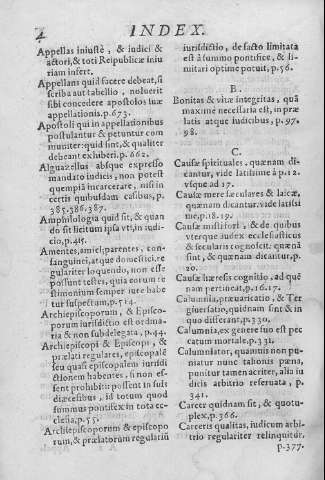 4 INDEX.
Appellas iniustè, & iudici &
actori, & toti Reipublicæ iniu
riam infert.
Appellans quid facere debeat, si
scriba aut tabellio, noluerit
sibi concedere apostolos suæ
appellationis. p.673.
Apostoli qui in appellationibus
postulantur & petuntur com
muniter: quid sint, & qualiter
debeant exhiberi. p. 662.
Alguazellus absque expresso
mandato iudicis, non potest
quempiã incarcerare, nisi in
certis quibusdam casibus, p.
385.386.387.
Amphilologia quid sit, & quan
do sit licitum ipsa vti, in iudi-
cio, p.415.
Amentes, amici, parentes, con-
sanguinei, atque domestici, re
gulariter loquendo, non esse
possunt testes, quia eorum te
stimonium semper iure habe
tur suspectum, p.514.
Archiepiscoporum, & Episco-
porum iurisdictio est ordina-
ria & non subdelegata, p.44.
Archiepiscopi & Episcopi, &
prælati regulares, episcopalẽ
seu quasi episcopalem iurisdi
ctionem habentes, si non es-
sent prohibiti: possent in suis
diœcesibus, id totum quod
summus pontifex in tota ec-
clesia, p.55.
Archiepiscoporum & episcopo
rum, & prælatorum regulariũ
iurisdictio, de facto limitata
est à summo pontifice, & li-
mitari optime potuit, p.56.
B.
Bonitas & vitæ integritas, quã
maximè necessaria est, in præ
latis atque iudicibus, p. 97.
98.
C.
Causæ spirituales, quænam di-
cantur, vide latissimè à p.12.
vsque ad 17.
Causæ mere sæculares & laicæ,
quænam dicantur, vide latissi
me, p.18.19.
Causæ mistifori, & de quibus
vterque iudex ecclesiasticus
& secularis cognoscit: quænã
sint, & quænam dicantur. p.
20.
Causæ hæresis cognitio, ad quẽ
nam pertineat, p.16.17.
Calumnia, præuaricatio, & Ter
giuersatio, quidnam sint & in
quo differant, p.330.
Calumnia, ex genere suo est pec
catum mortale. p.331.
Calumniator, quamuis non pu-
niatur nunc talionis pœna,
punitur tamen acriter, alia iu
dicis arbitrio reseruata, p.
341.
Carcer quidnam sit, & quotu-
plex, p.366.
Carceris qualitas, iudicum arbi-
trio regulariter relinquitur.
p.377.